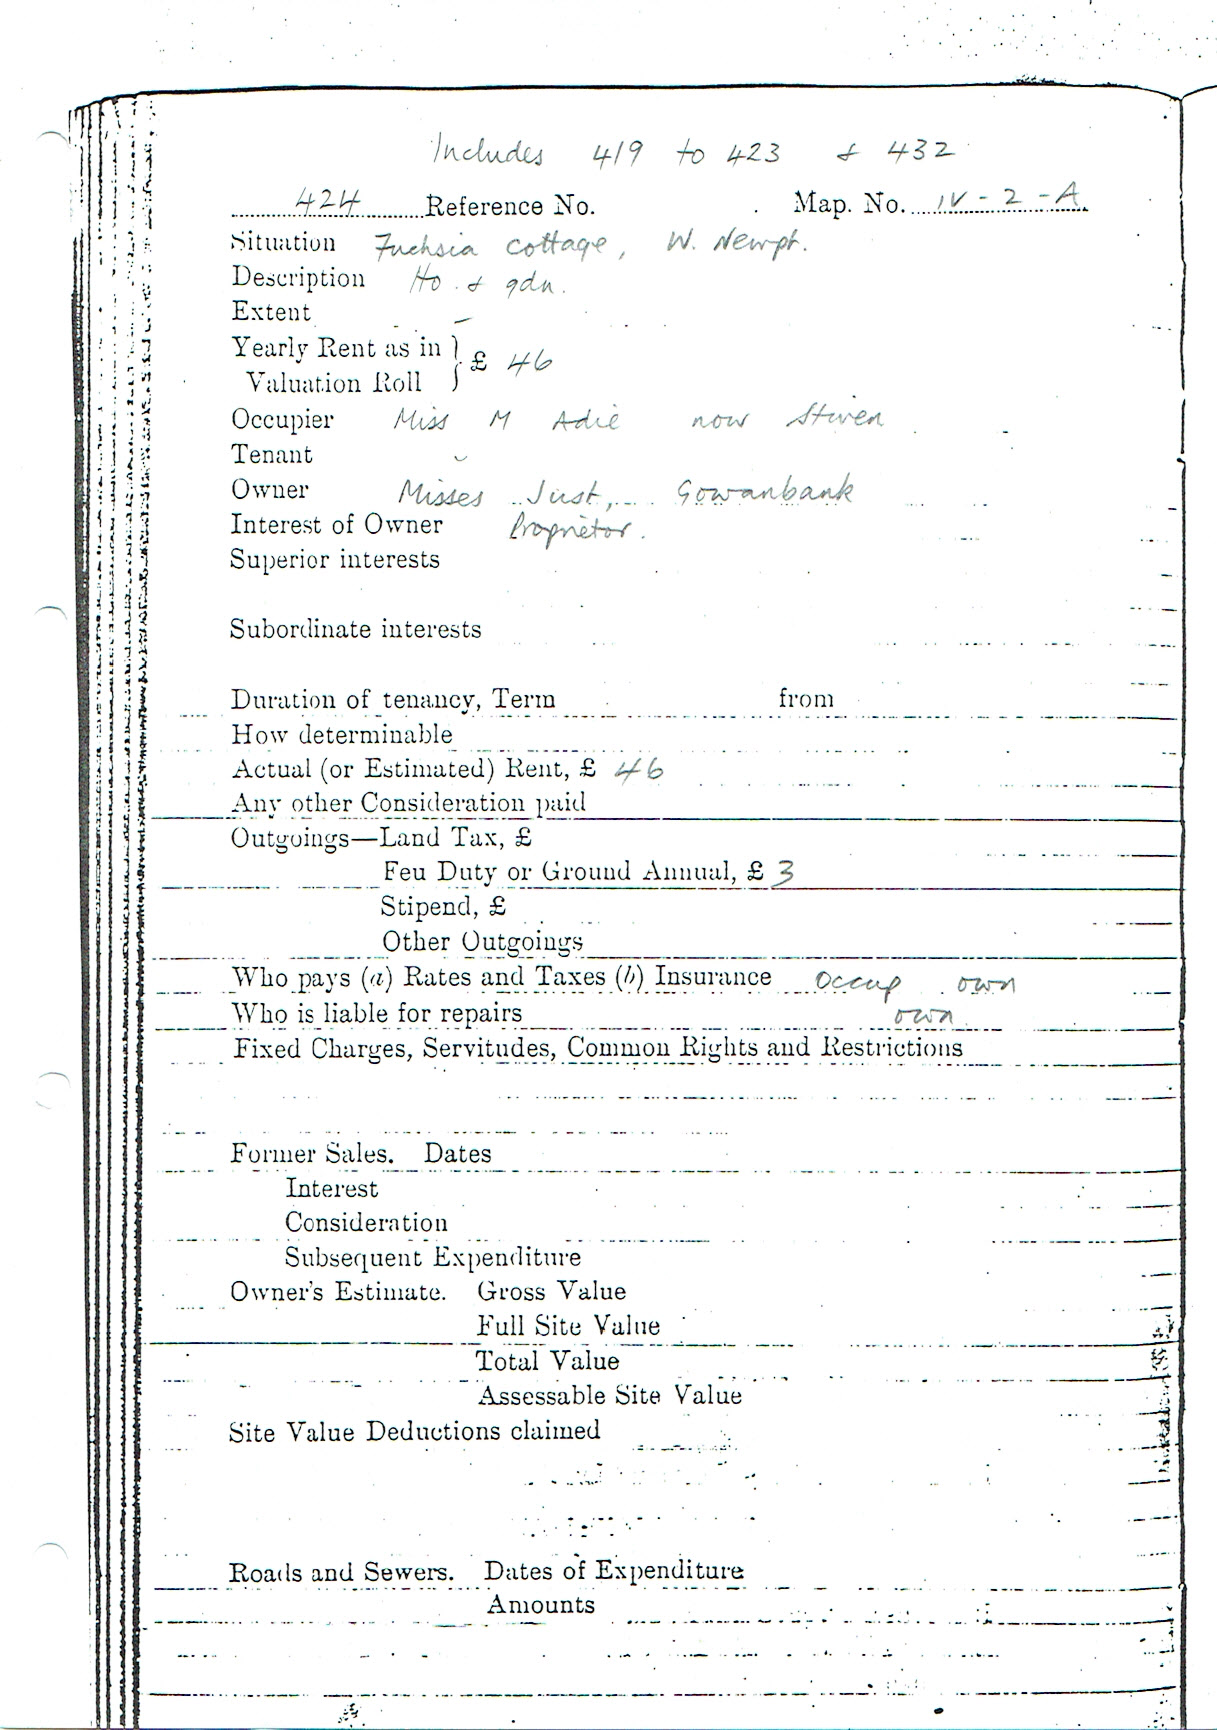 Includes 419 to 423 & 432
424 Reference No. Map. No. IV-2-A
Situation Fuchsia Cottage, W. Newpt.
Description Ho. & gdn.
Extent –
Yearly Rent as in } £ 46
Valuation Roll
Occupier Miss M Adie now Stiven
Tenant
Owner Misses Just, Gowanbank
Interest of Owner Proprietor.
Superior interests
Subordinate interests
Duration of tenancy, Term from
How determinable
Actual (or Estimated) Rent, £ 46
Any other Consideration paid
Outgoings—Land Tax, £
Feu Duty or Ground Annual, £ 3
Stipend, £
Other Outgoings
Who pays (a) Rates and Taxes (b) Insurance Occup own
Who is liable for repairs own
Fixed Charges, Servitudes, Common Rights and Restrictions
Former Sales. Dates
Interest
Consideration
Subsequent Expenditure
Owner's Estimate. Gross Value
Full Site Value
Total Value
Assessable Site Value
Site Value Deductions claimed
Roads and Sewers. Dates of Expenditure
Amounts